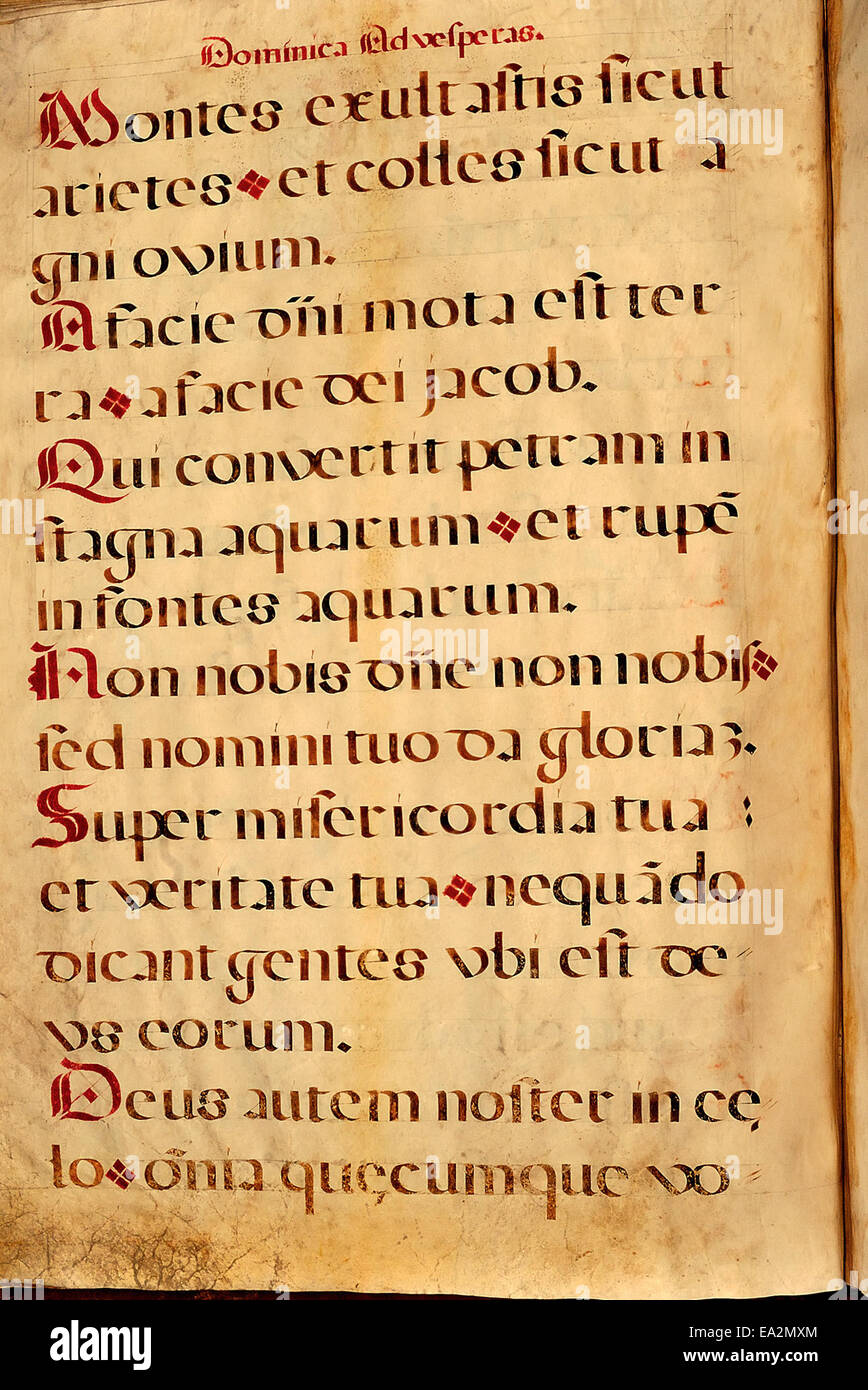 Dominica Ad veſperas.
Montes exultaſtis ſicut
arietes et colles ſicut a
gni ovium.
A facie dñi mota eſt ter
ra a facie dei jacob.
Qui convertit petram in
ſtagna aquarum et rupē
in fontes aquarum.
Non nobis dñe non nobiſ
ſed nomini tuo da gloriaꝫ.
Super miſericordia tua :
et veritate tua nequādo
dicant gentes vbi eſt de=
vs eorum.
Deus autem noſter in cę
lo om̄ia quęcumque vo=
alamy
alamy stock photo
Image ID: EA2MXM
www.alamy.com